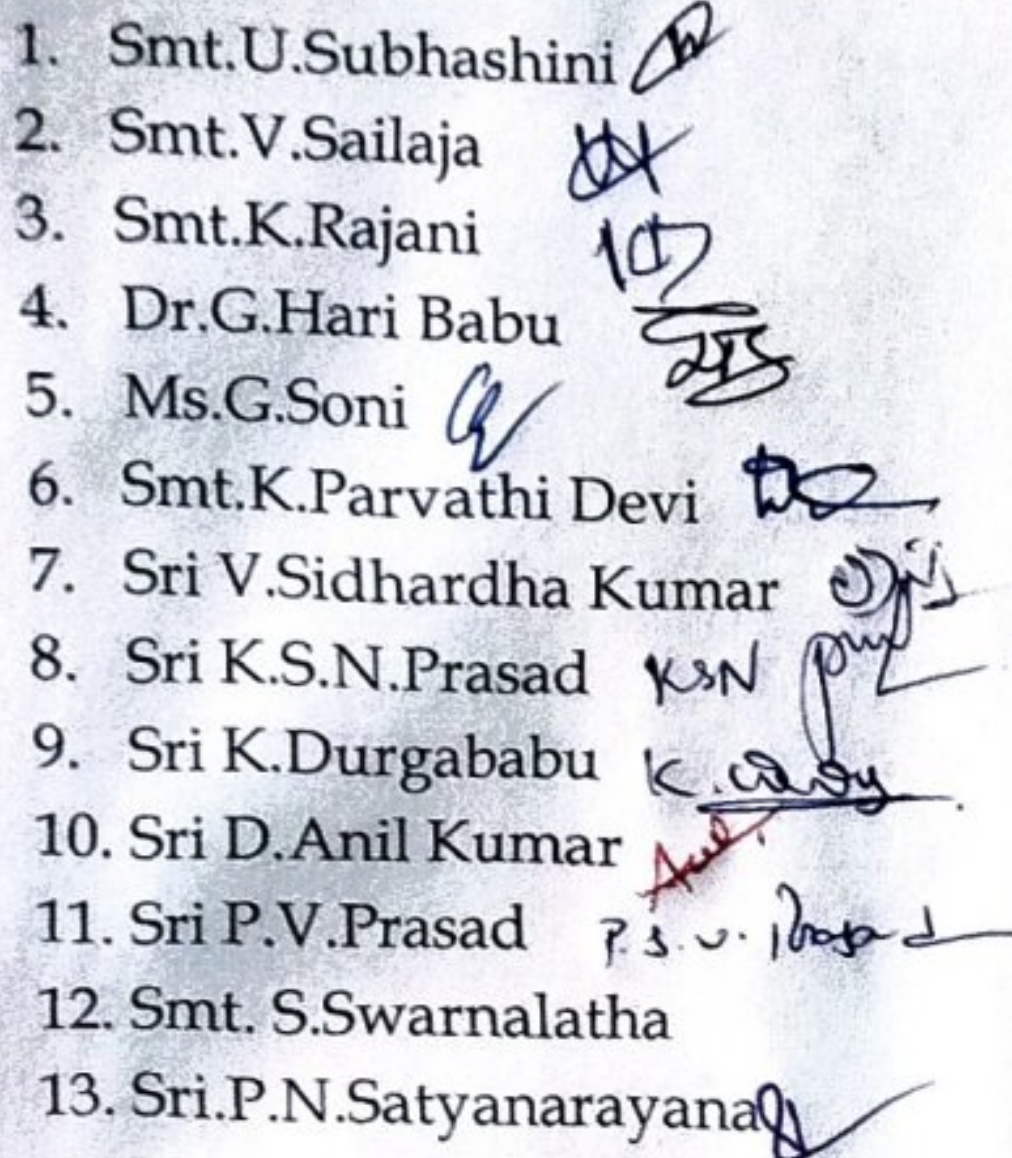 1. Smt.U.Subhashini
2. Smt.V.Sailaja
3. Smt.K.Rajani
4. Dr.G.Hari Babu
5. Ms.G.Soni
6. Smt.K.Parvathi Devi
7. Sri V.Sidhardha Kumar
8. Sri K.S.N.Prasad KSN
9. Sri K.Durgababu K.
10. Sri D.Anil Kumar
11. Sri P.V.Prasad P.S.V. Prasad
12. Smt. S.Swarnalatha
13. Sri.P.N.Satyanarayana